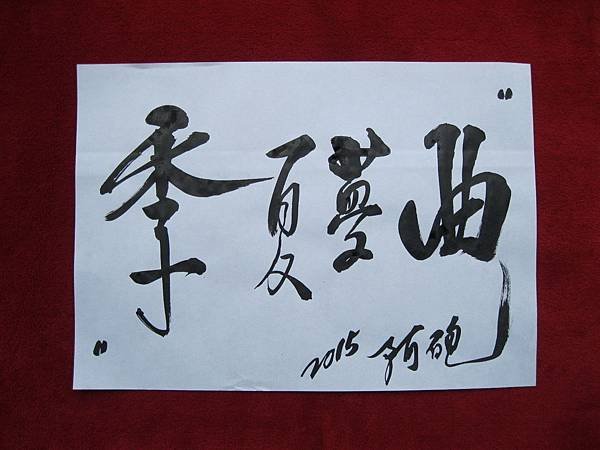 "季夏夢曲"
2015 阿砲